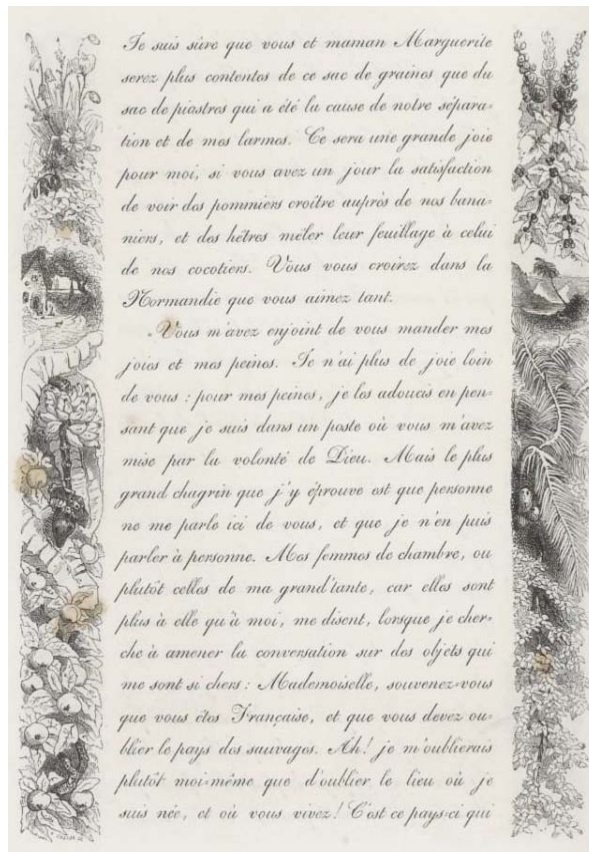 Je suis sûre que vous et maman Marguerite
serez plus contentes de ce sac de graines que du
sac de piastres qui a été la cause de notre sépara-
tion et de mes larmes. Ce sera une grande joie
pour moi, si vous avez un jour la satisfaction
de voir des pommiers croître auprès de nos bana-
niers, et des hêtres mêler leur feuillage à celui
de nos cocotiers. Vous vous croirez dans la
Normandie que vous aimez tant.
Vous m'avez enjoint de vous mander mes
joies et mes peines. Je n'ai plus de joie loin
de vous : pour mes peines, je les adoucis en pen-
sant que je suis dans un poste où vous m'avez
mise par la volonté de Dieu. Mais le plus
grand chagrin que j'y éprouve est que personne
ne me parle ici de vous, et que je n'en puis
parler à personne. Mes femmes de chambre, ou
plutôt celles de ma grand'tante, car elles sont
plus à elle qu'à moi, me disent, lorsque je cher-
che à amener la conversation sur des objets qui
me sont si chers : Mademoiselle, souvenez-vous
que vous êtes Française, et que vous devez ou-
blier le pays des sauvages. Ah! je m'oublierais
plutôt moi-même que d'oublier le lieu où je
suis née, et où vous vivez! C'est ce pays-ci qui